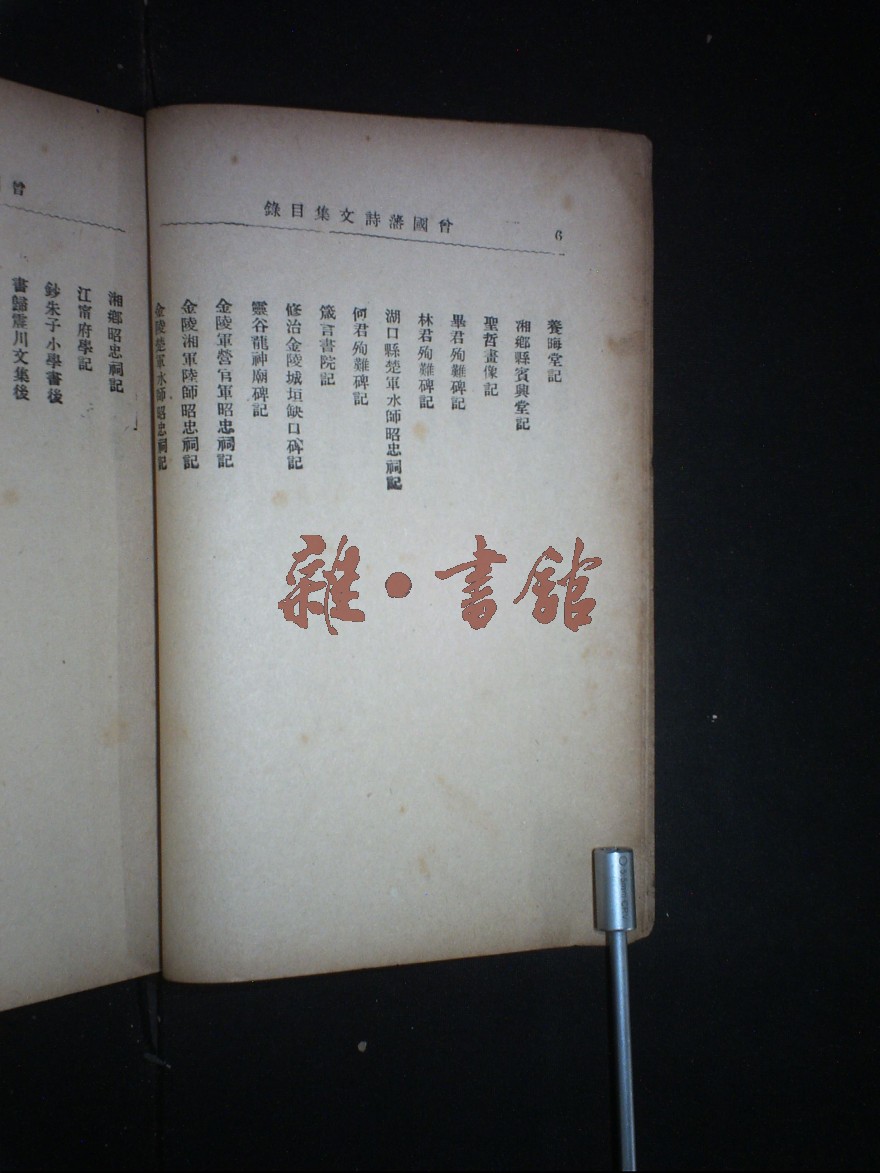 曾國藩詩文集目錄
6
養晦堂記
湘鄉縣賓興堂記
聖哲畫像記
畢君殉難碑記
林君殉難碑記
湖口縣楚軍水師昭忠祠記
何君殉難碑記
箴言書院記
修治金陵城垣缺口碑記
靈谷龍神廟碑記
金陵軍營官軍昭忠祠記
金陵湘軍陸師昭忠祠記
金陵楚軍水師昭忠祠記
曾
湘鄉昭忠祠記
江甯府學記
鈔朱子小學書後
書歸震川文集後
雜·書館